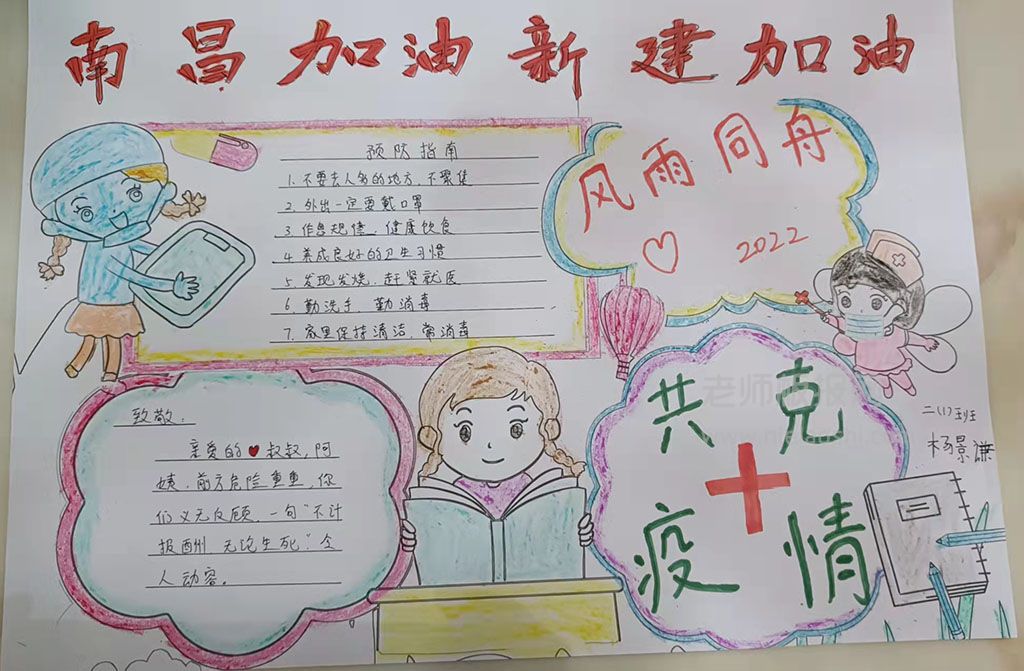 南昌加油新建加油
预防指南
1. 不要去人多的地方,不聚集
2. 外出一定要戴口罩
3 作息规律,健康饮食
4 养成良好的卫生习惯
5 发现发烧,赶紧就医
6 勤洗手 勤消毒
7. 家里保持清洁 常消毒
风雨同舟
2022
致敬:
亲爱的♥叔叔,阿
姨,前方危险重重,你
们义无反顾,一句"不计
报酬 无论生死",令
人动容。
共克
疫情
二(1)班
杨景谦